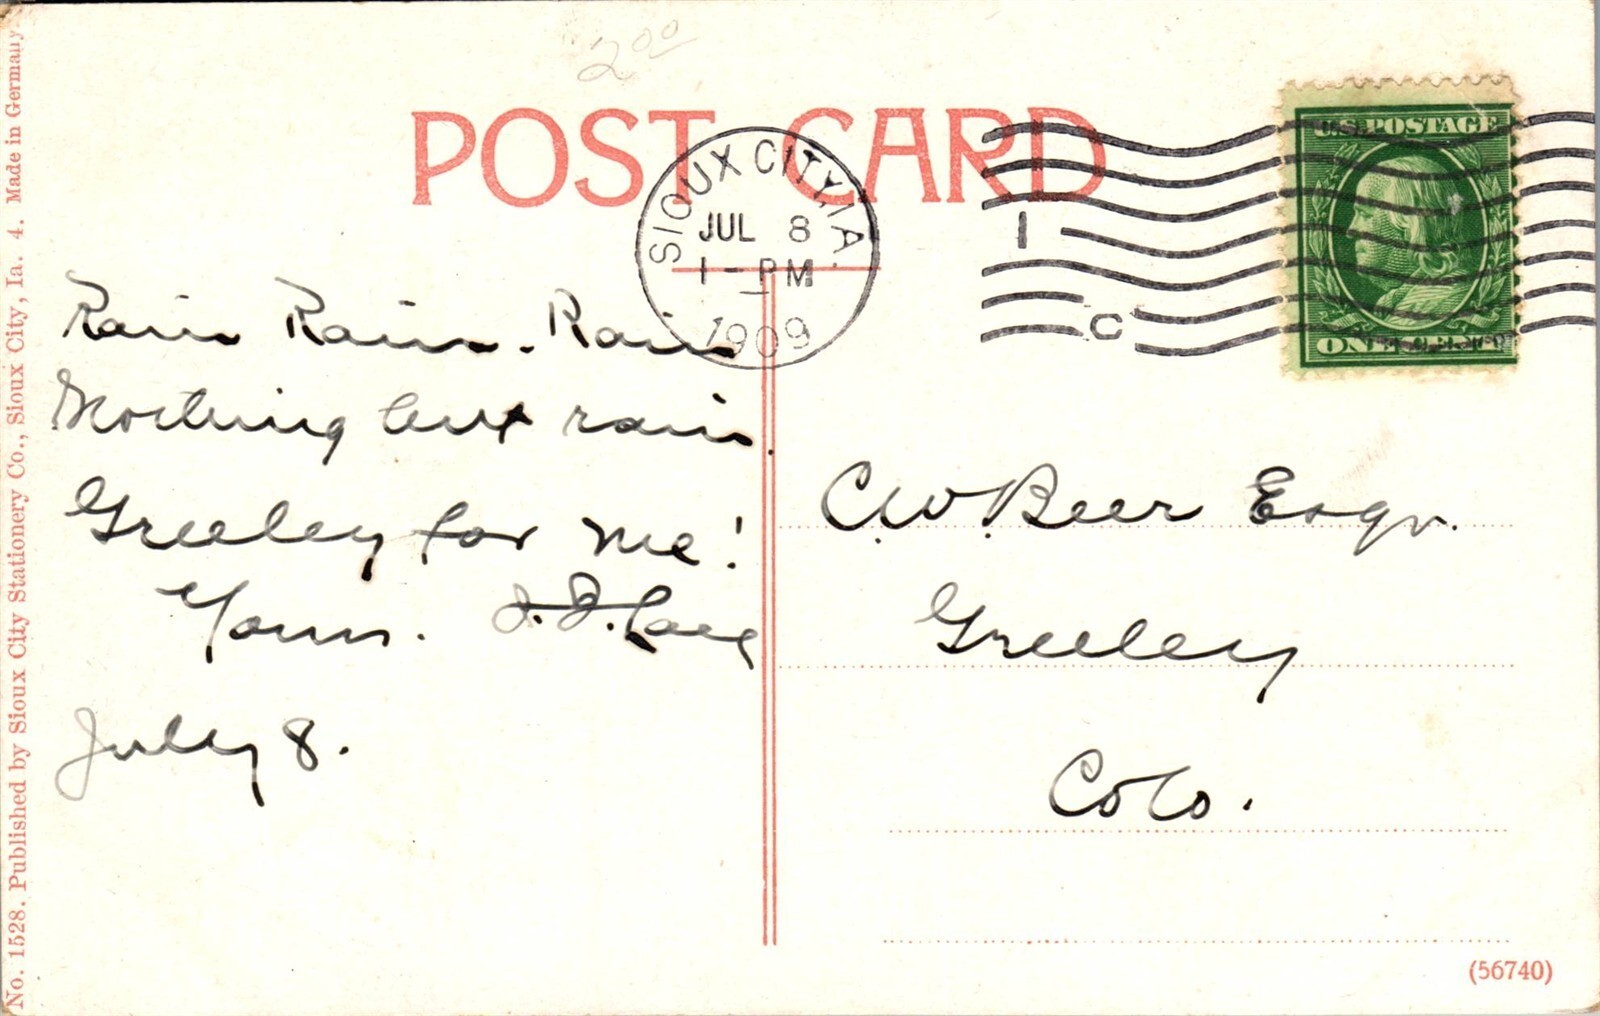 2.00
POST CARD
SIOUX CITY, IA.
JUL 8
1 - PM
1909
1
C
U.S. POSTAGE
ONE CENT
Rain Rain. Rain
Nothing but rain.
Greeley for me!
Yours.
July 8.
C.W. Beer Esqr.
Greeley
Colo.
No. 1528. Published by Sioux City Stationery Co., Sioux City, Ia. 4. Made in Germany
(56740)